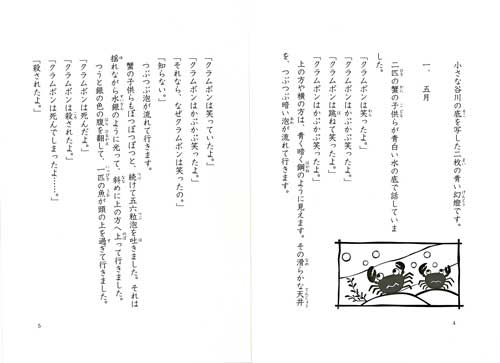 小さな谷川の底を写した二枚の青い幻燈です。
一、五月
二匹の蟹の子供らが青白い水の底で話していま
した。
『クラムボンは笑ったよ。』
『クラムボンはかぷかぷ笑ったよ。』
『クラムボンは跳ねて笑ったよ。』
『クラムボンはかぷかぷ笑ったよ。』
上の方や横の方は、青く暗く鋼のように見えます。その滑らかな天井
を、つぶつぶ暗い泡が流れて行きます。
4
『クラムボンは笑っていたよ。』
『クラムボンはかぷかぷ笑ったよ。』
『それなら、なぜクラムボンは笑ったの。』
『知らない。』
つぶつぶ泡が流れて行きます。
蟹の子供らもぽつぽつぽつと、続けて五六粒泡を吐きました。それは
揺れながら水銀のように光って、斜めに上の方へ上って行きました。
つうと銀の色の腹を翻して、一匹の魚が頭の上を過ぎて行きました。
『クラムボンは死んだよ。』
『クラムボンは殺されたよ。』
『クラムボンは死んでしまったよ……。』
『殺されたよ。』
5